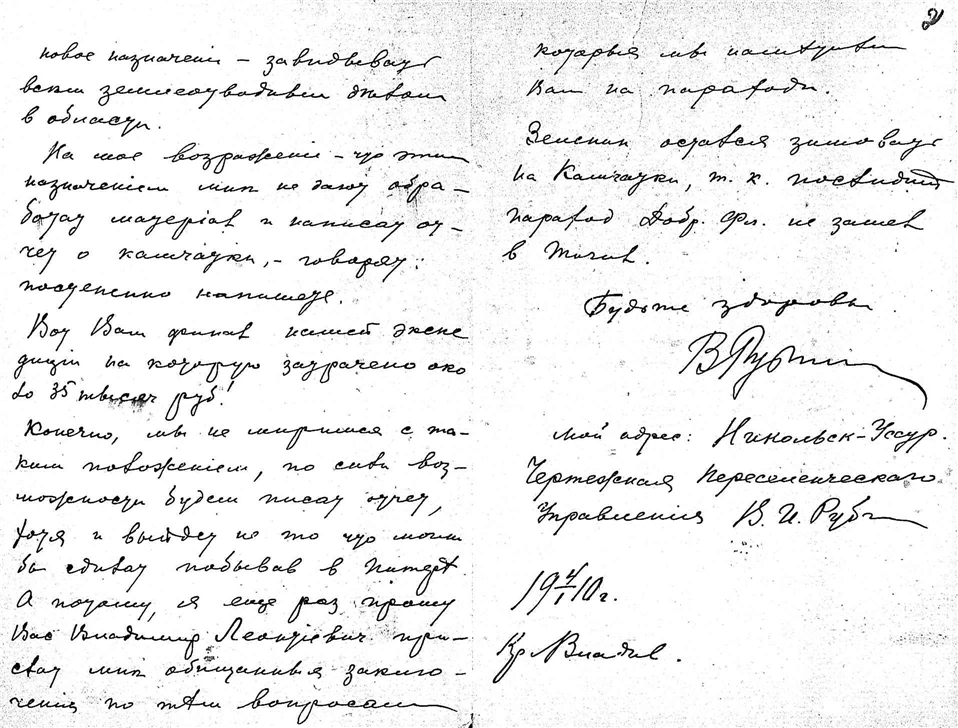 2
новое назначенiе – завѣдывать
всѣми землеотводными дѣлами
в области.
На мое возраженiе – что этим
назначенiем мнѣ не дают обра-
ботать матерiал и написать от-
чет о Камчаткѣ, – говорят:
постепенно напишете.
Вот Вам финал нашей экспе
дицiи на которую затрачено око
ло 35 тысяч руб!
Конечно, мы не миримся с та-
ким положенiем, по силѣ воз-
можности будем писать отчет,
хотя и выйдет не то что могли
бы сдѣлать побывав в Питерѣ.
А потому, я еще раз прошу
Вас Владимир Леонтiевич при-
слать мнѣ обѣщанныя заклю-
ченiя по тѣм вопросам
которые мы наметили
Вам на пароходѣ.
остался зимовать
на Камчаткѣ, т. к. послѣднiй
пароход Добр. Фл. не зашел
в Тигиль.
Будьте здоровы
В Рубин
мой адрес: Никольск-Уссур.
Чертежная Переселенческаго
Управления В. И. Рубин
19 4/I 10 г.
Владив.